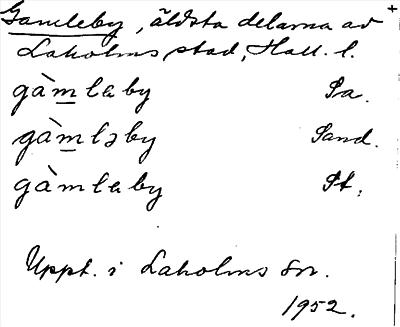 Gamleby, äldsta delarna av
Laholms stad, Hall. l.
gàmlaby Sa.
gàmləby Sand.
gàmlaby St.
Uppt. i Laholms sn.
1952.